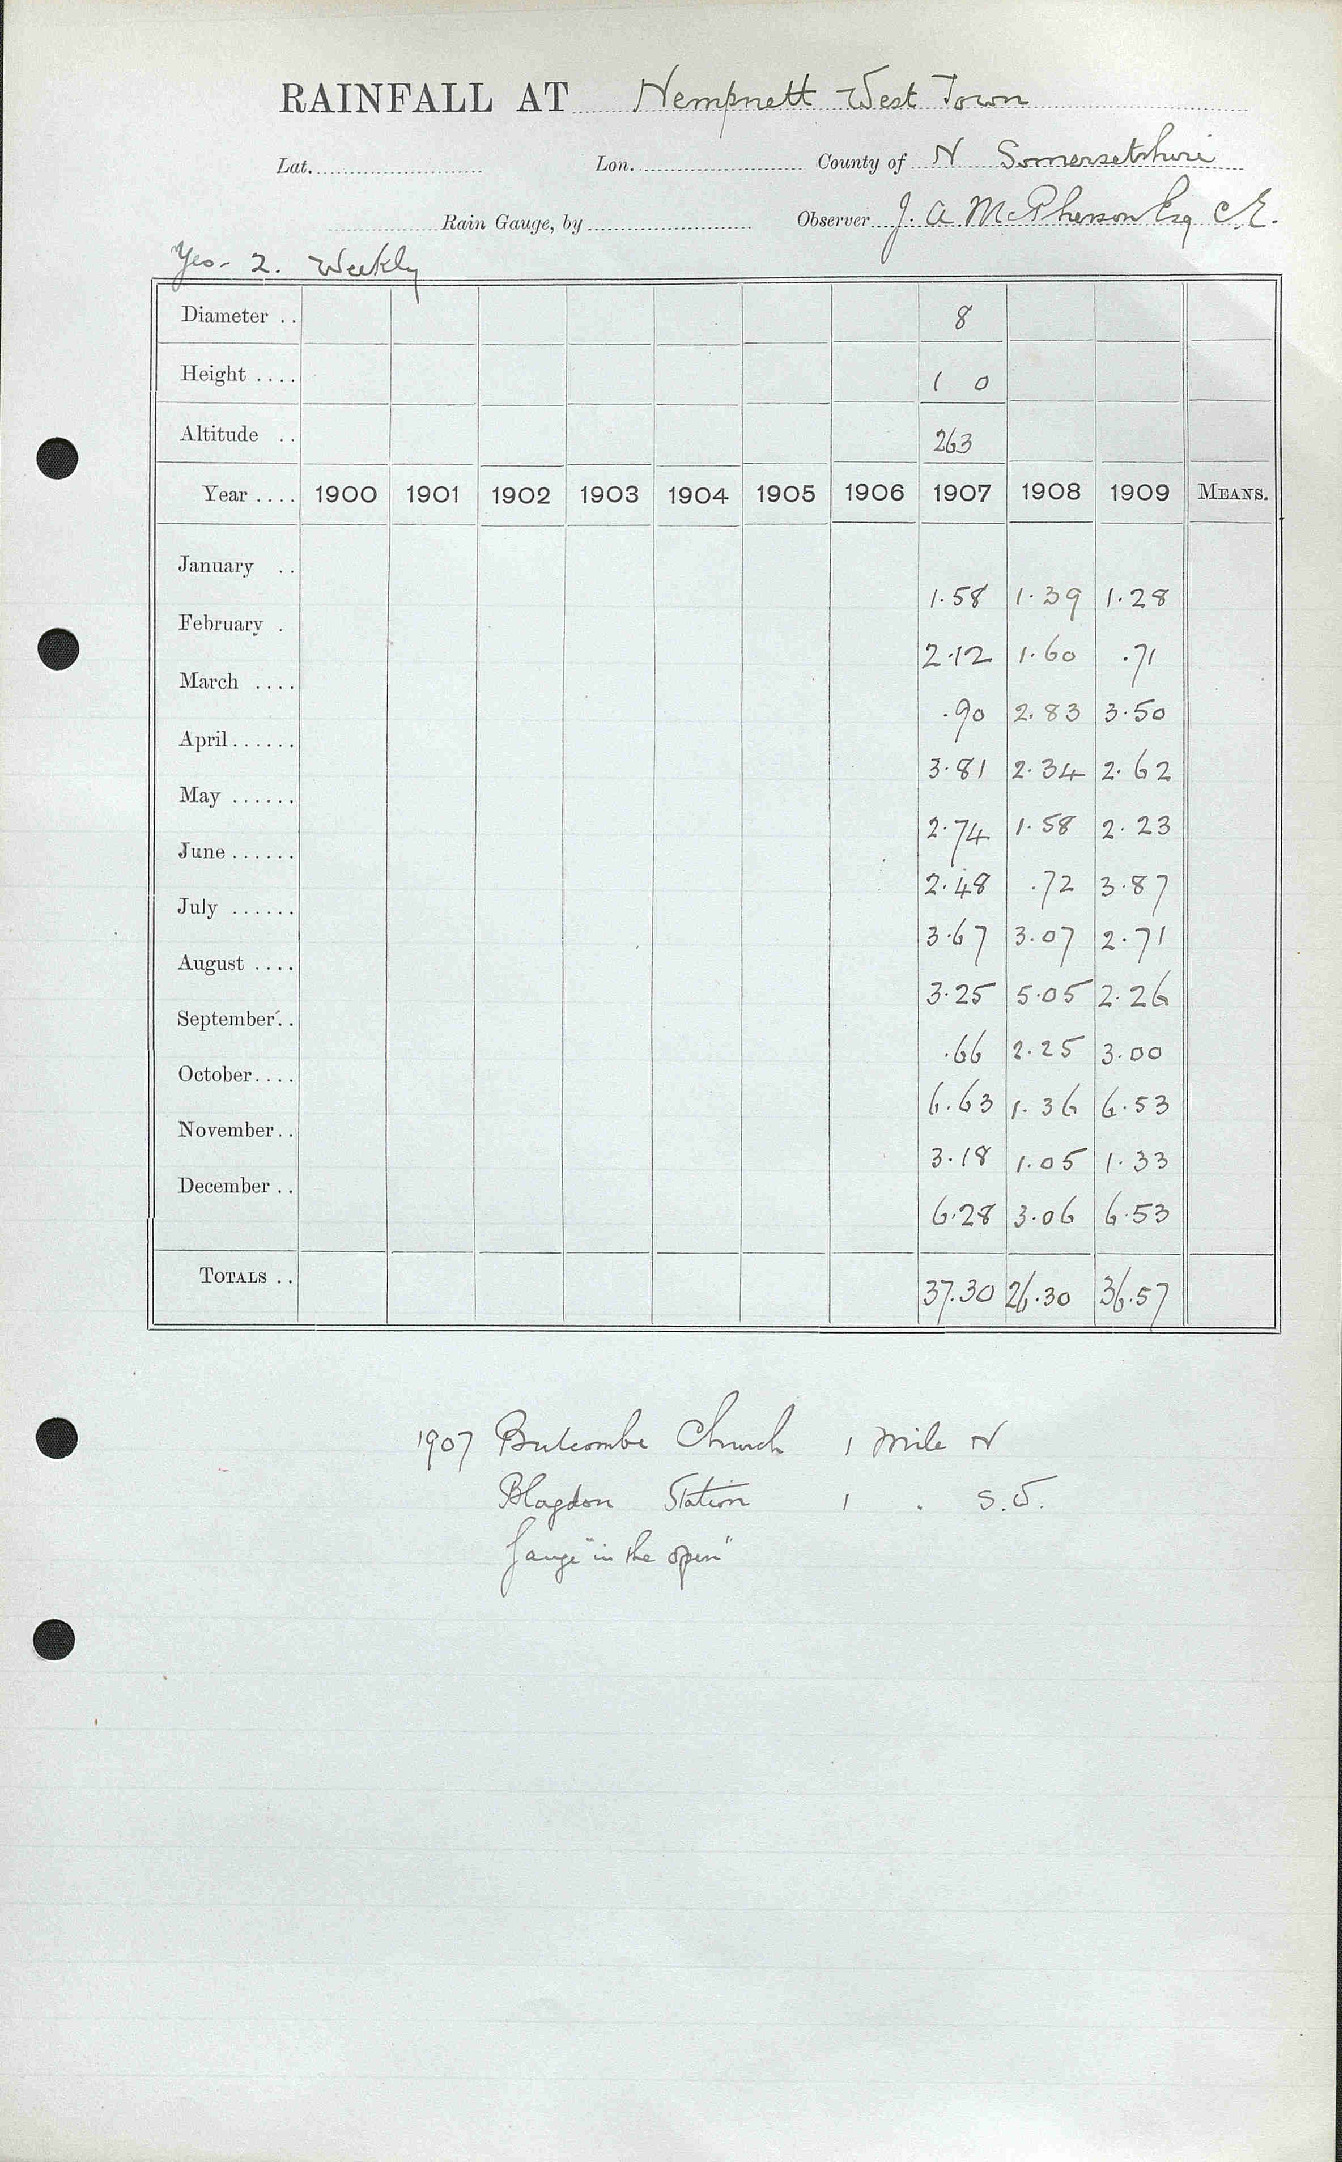 RAINFALL AT Nempnett West Town
Lat. Lon. County of N Somersetshire
Rain Gauge, by Observer J. A. McPherson Esq C.E.
Yeo - 2. Weekly
Diameter .. 8
Height .... 1 0
Altitude .. 263
Year .... 1900 1901 1902 1903 1904 1905 1906 1907 1908 1909 MEANS.
January .. 1.58 1.39 1.28
February . 2.12 1.60 .71
March .... .90 2.83 3.50
April...... 3.81 2.34 2.62
May ...... 2.74 1.58 2.23
June...... 2.48 .72 3.87
July ...... 3.67 3.07 2.71
August .... 3.25 5.05 2.26
September.. .66 2.25 3.00
October.... 6.63 1.36 6.53
November.. 3.18 1.05 1.33
December .. 6.28 3.06 6.53
TOTALS .. 37.30 26.30 36.57
1907 Butcombe Church 1 Mile N
Blagdon Station 1 . S.
Gauge "in the open"